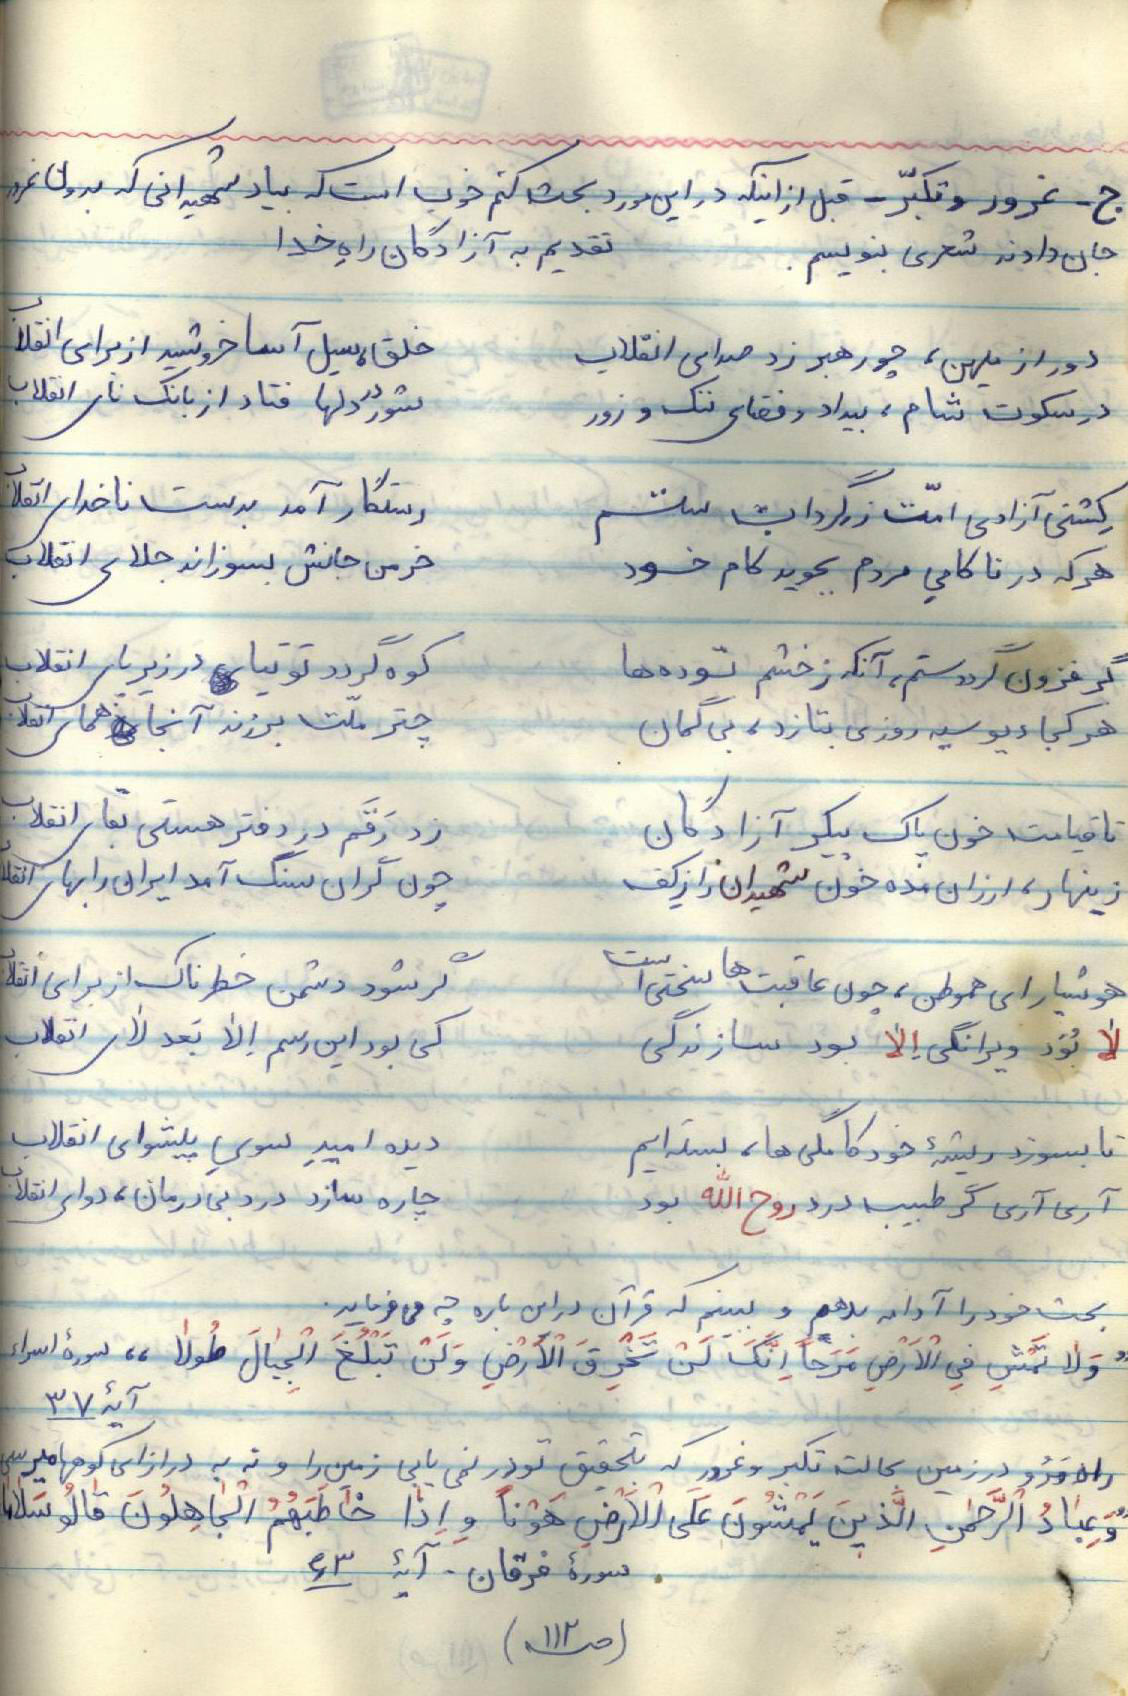 ج - غرور و تکبّر - قبل از اینکه در این مورد بحث کنم خوب است که بیاد شهیدانی که بدون غرور
جان دادند شعری بنویسم. تقدیم به آزادگان راهِ خدا
دور از میهن، چو رهبر زد صدای انقلاب خلق، سیل آسا خروشید از برای انقلاب
در سکوت شام، بیداد و فضای ننگ و زور شور در دلها فتاد از بانگ نای انقلاب
کشتی آزادی امّت ز گرداب ستم رستگار آمد بدست ناخدای انقلاب
هر که در ناکامی مردم بجوید کام خود خرمن جانش بسوزاند جلای انقلاب
گر فزون گردد ستم، آنکه ز خشم توده‌ها کوه گردد توتیا در زیر پای انقلاب
هر کجا دیو سیه روزی بتازد، بی گمان چتر ملّت برزند آنجا همای انقلاب
تا قیامت خون پاک پیکر آزادگان زد رَقَم در دفتر هستی بقای انقلاب
زینهار، ارزان مده خون شهیدان را ز کف چون گران سنگ آمد ایران را بهای انقلاب
هوشیار ای هموطن، چون عاقبت‌ها سختی است گر شود دشمن خطرناک از برای انقلاب
لا بُوَد ویرانگی إلا بود سازندگی کی بود این رسم إلا بَعد لای انقلاب
تا بسوزد ریشۀ خودکامگی‌ها، بسته‌ایم دیده امیدِ سویِ پیشوای انقلاب
آری آری گر طبیب درد روح الله بود چاره سازد درد بی درمان، دوای انقلاب
بحث خود را ادامه بدهم و ببینم که قرآن در این باره چه می‌فرماید.
"وَلا تَمْشِ فِي الْاَرْضِ مَرَحاً اِنَّكَ لَنْ تَخْرِقَ الْاَرْضَ وَلَنْ تَبْلُغَ الْجِبٰالَ طُولاً ،، سورۀ اسراء
آیۀ ۳۷
راه مَرُو در زمین بحالت تکبر و غرور که بتحقیق تو در نمی یابی زمین را و نه به درازای کوهها میرسی
"وَعِبٰادُ الرَّحْمٰنِ الَّذينَ يَمْشُونَ عَلَى الْاَرْضِ هَوْناً وَ اِذٰا خٰاطَبَهُمُ الْجٰاهِلُونَ قٰالُو سَلاماً
سورۀ فرقان - آیۀ ۶۳
(ص ۱۱۲)